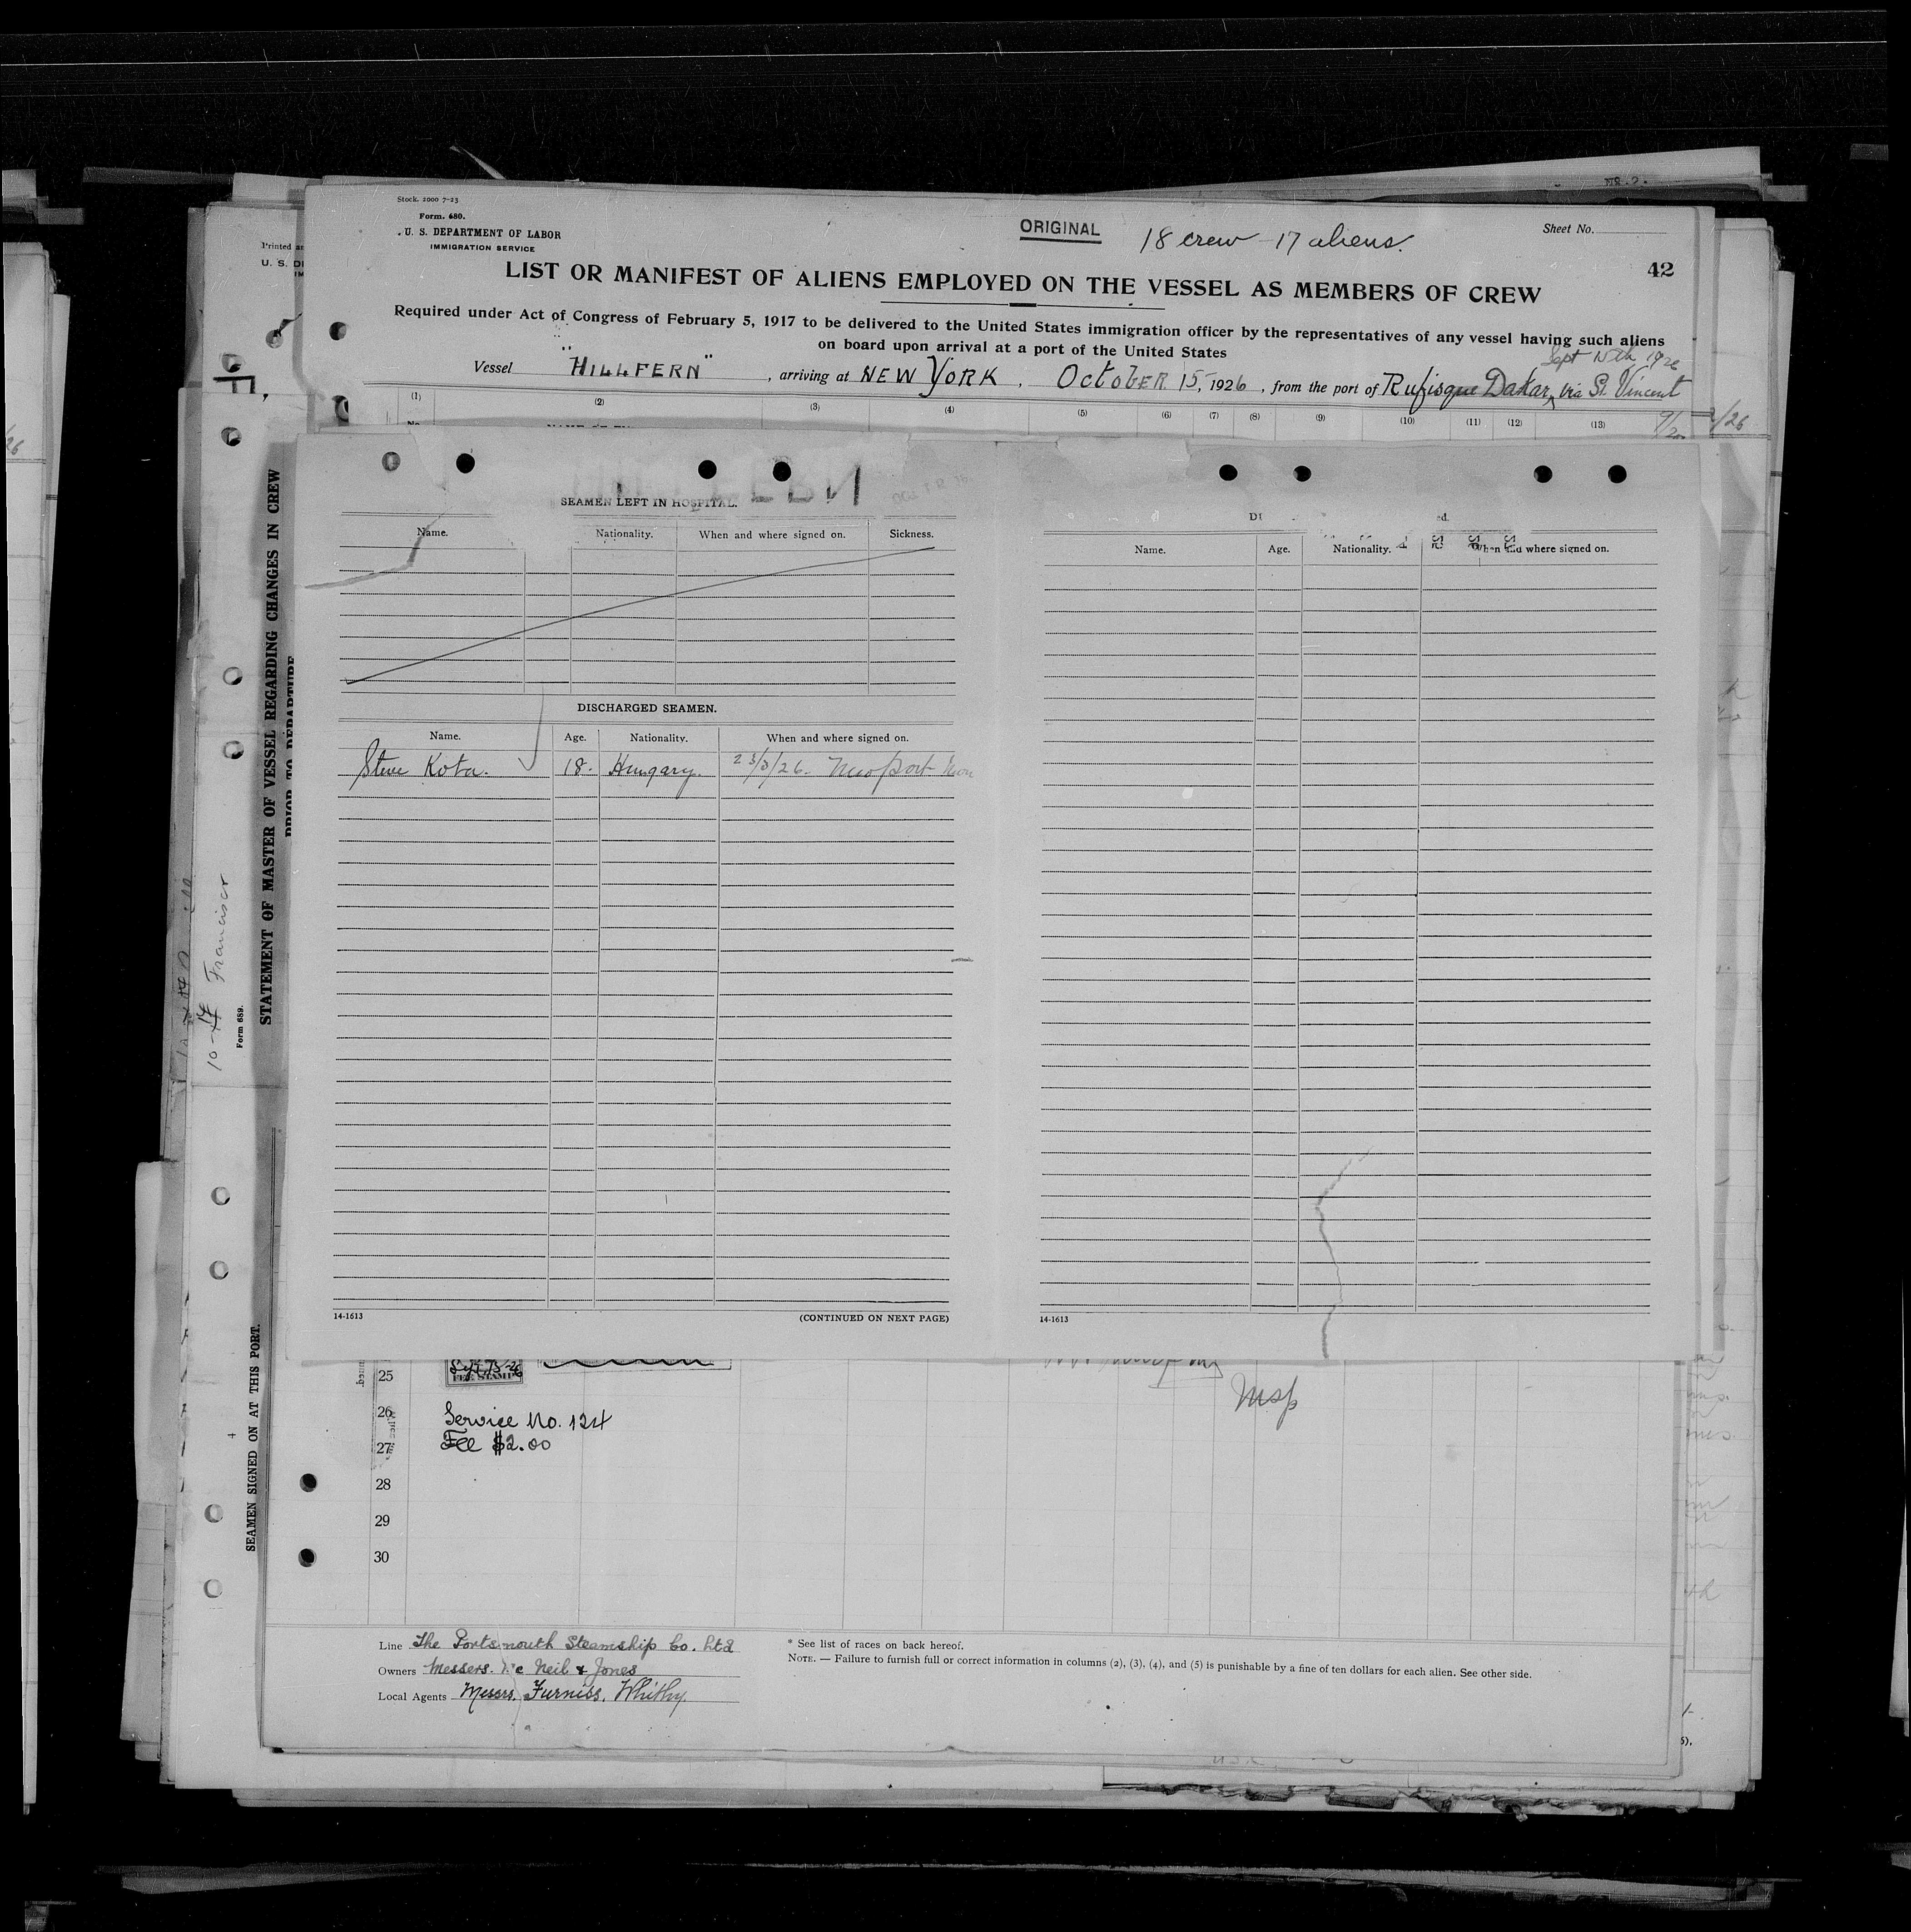 Stock. 2000 7-23
Form. 680.
U. S. DEPARTMENT OF LABOR
IMMIGRATION SERVICE
ORIGINAL
18 crew - 17 aliens.
Sheet No.
42
LIST OR MANIFEST OF ALIENS EMPLOYED ON THE VESSEL AS MEMBERS OF CREW
Required under Act of Congress of February 5, 1917 to be delivered to the United States immigration officer by the representatives of any vessel having such aliens
on board upon arrival at a port of the United States
Sept 15th 1926
Vessel "HILLFERN", arriving at NEW YORK, OCTOBER 15, 1926, from the port of Rufisque Dakar, via St. Vincent
(1) (2) (3) (4) (5) (6) (7) (8) (9) (10) (11) (12) (13)
SEAMEN LEFT IN HOSPITAL.
Name. Nationality. When and where signed on. Sickness.
DISCHARGED SEAMEN.
Name. Age. Nationality. When and where signed on.
Steve Kota. 18. Hungary. 23/3/26. Newport Mon
14-1613 (CONTINUED ON NEXT PAGE)
Name. Age. Nationality. When and where signed on.
14-1613
STATEMENT OF MASTER OF VESSEL REGARDING CHANGES IN CREW
PRIOR TO DEPARTURE
Form 689.
Francisco
SEAMEN SIGNED ON AT THIS PORT.
25
FEE STAMP
Msp
26 Service No. 124
27 Fee $2.00
28
29
30
Line The Portsmouth Steamship Co. Ltd
Owners Messers. Mc Neil & Jones
Local Agents Messrs. Furniss, Whithy.
* See list of races on back hereof.
NOTE. — Failure to furnish full or correct information in columns (2), (3), (4), and (5) is punishable by a fine of ten dollars for each alien. See other side.